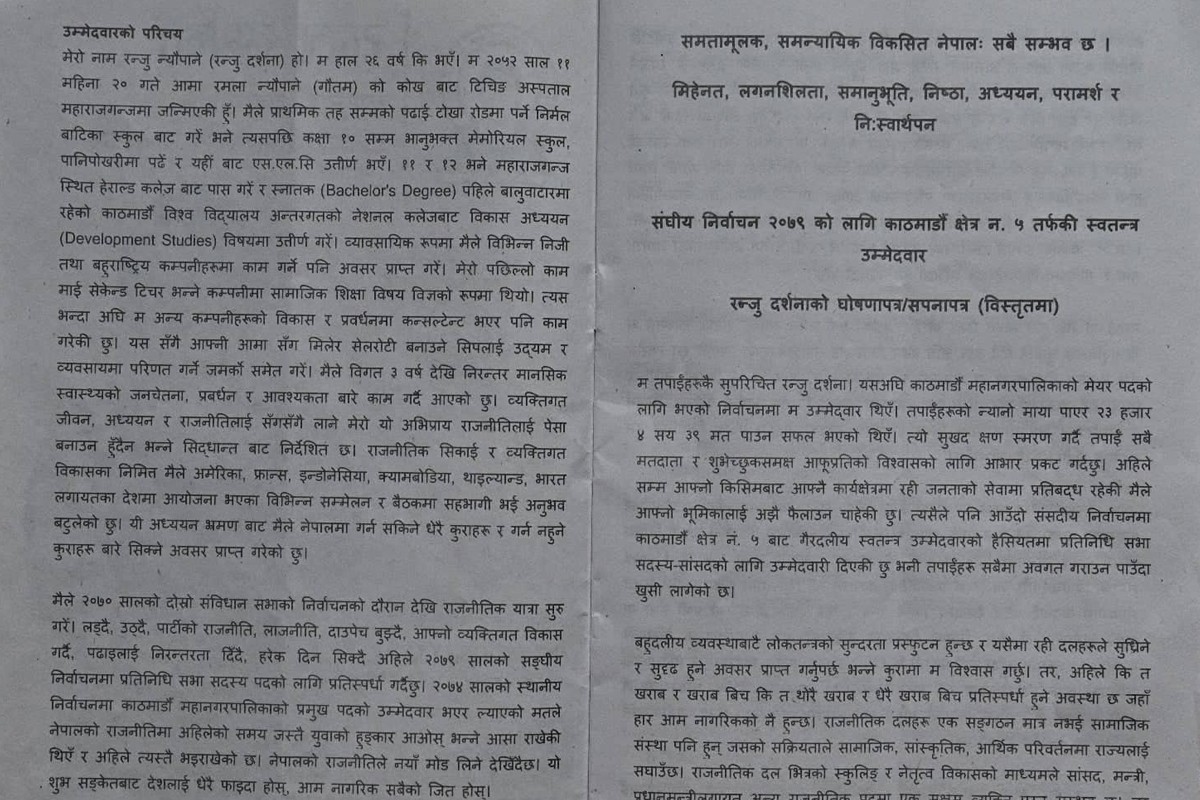 उम्मेदवारको परिचय
मेरो नाम रन्जु न्यौपाने (रन्जु दर्शना) हो। म हाल २६ वर्ष कि भएँ। म २०५२ साल ११
महिना २० गते आमा रमला न्यौपाने (गौतम) को कोख बाट टिचिङ अस्पताल
महाराजगन्जमा जन्मिएकी हुँ। मैले प्राथमिक तह सम्मको पढाई टोखा रोडमा पर्ने निर्मल
बाटिका स्कुल बाट गरें भने त्यसपछि कक्षा १० सम्म भानुभक्त मेमोरियल स्कुल,
पानिपोखरीमा पढें र यहीं बाट एस.एल.सि उत्तीर्ण भएँ। ११ र १२ भने महाराजगन्ज
स्थित हेराल्ड कलेज बाट पास गरें र स्नातक (Bachelor's Degree) पहिले बालुवाटारमा
रहेको काठमाडौं विश्व विद्यालय अन्तरगतको नेशनल कलेजबाट विकास अध्ययन
(Development Studies) विषयमा उत्तीर्ण गरें। व्यावसायिक रूपमा मैले विभिन्न निजी
तथा बहुराष्ट्रिय कम्पनीहरुमा काम गर्ने पनि अवसर प्राप्त गरें। मेरो पछिल्लो काम
माई सेकेन्ड टिचर भन्ने कम्पनीमा सामाजिक शिक्षा विषय विज्ञको रूपमा थियो। त्यस
भन्दा अघि म अन्य कम्पनीहरुको विकास र प्रवर्धनमा कन्सल्टेन्ट भएर पनि काम
गरेकी छु। यस सँगै आफ्नी आमा सँग मिलेर सेलरोटी बनाउने सिपलाई उद्यम र
व्यवसायमा परिणत गर्ने जमर्को समेत गरें। मैले विगत ३ वर्ष देखि निरन्तर मानसिक
स्वास्थ्यको जनचेतना, प्रबर्धन र आवश्यकता बारे काम गर्दै आएको छु। व्यक्तिगत
जीवन, अध्ययन र राजनीतिलाई सँगसँगै लाने मेरो यो अभिप्राय राजनीतिलाई पेसा
बनाउन हुँदैन भन्ने सिद्धान्त बाट निर्देशित छ। राजनीतिक सिकाई र व्यक्तिगत
विकासका निमित्त मैले अमेरिका, फ्रान्स, इन्डोनेसिया, क्यामबोडिया, थाइल्यान्ड, भारत
लगायतका देशमा आयोजना भएका विभिन्न सम्मेलन र बैठकमा सहभागी भई अनुभव
बटुलेको छु। यी अध्ययन भ्रमण बाट मैले नेपालमा गर्न सकिने धेरै कुराहरू र गर्न नहुने
कुराहरू बारे सिक्ने अवसर प्राप्त गरेको छु।
मैले २०७० सालको दोस्रो संविधान सभाको निर्वाचनको दौरान देखि राजनीतिक यात्रा सुरु
गरें। लड्दै, उठ्दै, पार्टीको राजनीति, लाजनीति, दाउपेच बुझ्दै, आफ्नो व्यक्तिगत विकास
गर्दै, पढाइलाई निरन्तरता दिँदै, हरेक दिन सिक्दै अहिले २०७९ सालको सङ्घीय
निर्वाचनमा प्रतिनिधि सभा सदस्य पदको लागि प्रतिस्पर्धा गर्दैछु। २०७४ सालको स्थानीय
निर्वाचनमा काठमाडौं महानगरपालिकाको प्रमुख पदको उम्मेदवार भएर ल्याएको मतले
नेपालको राजनीतिमा अहिलेको समय जस्तै युवाको हुङ्कार आओस् भन्ने आसा राखेकी
थिएँ र अहिले त्यस्तै भइराखेको छ। नेपालको राजनीतिले नयाँ मोड लिने देखिँदैछ। यो
शुभ सङ्केतबाट देशलाई धेरै फाइदा होस्, आम नागरिक सबैको जित होस्।
समतामूलक, समन्यायिक विकसित नेपालः सबै सम्भव छ ।
मिहेनत, लगनशिलता, समानुभूति, निष्ठा, अध्ययन, परामर्श र
नि:स्वार्थपन
संघीय निर्वाचन २०७९ को लागि काठमाडौं क्षेत्र न. ५ तर्फकी स्वतन्त्र
उम्मेदवार
रन्जु दर्शनाको घोषणापत्र/सपनापत्र (विस्तृतमा)
म तपाईंहरुकै सुपरिचित रन्जु दर्शना। यसअघि काठमाडौं महानगरपालिकाको मेयर पदको
लागि भएको निर्वाचनमा म उम्मेद्वार थिएँ। तपाईंहरूको न्यानो माया पाएर २३ हजार
४ सय ३९ मत पाउन सफल भएको थिएँ। त्यो सुखद क्षण स्मरण गर्दै तपाईं सबै
मतदाता र शुभेच्छुकसमक्ष आफूप्रतिको विश्वासको लागि आभार प्रकट गर्दछु। अहिले
सम्म आफ्नो किसिमबाट आफ्नै कार्यक्षेत्रमा रही जनताको सेवामा प्रतिबद्ध रहेकी मैले
आफ्नो भूमिकालाई अझै फैलाउन चाहेकी छु। त्यसैले पनि आउँदो संसदीय निर्वाचनमा
काठमाडौं क्षेत्र नं. ५ बाट गैरदलीय स्वतन्त्र उम्मेदवारको हैसियतमा प्रतिनिधि सभा
सदस्य-सांसदको लागि उम्मेदवारी दिएकी छु भनी तपाईंहरू सबैमा अवगत गराउन पाउँदा
खुसी लागेको छ।
बहुदलीय व्यवस्थाबाटै लोकतन्त्रको सुन्दरता प्रस्फुटन हुन्छ र यसैमा रही दलहरूले सुध्रिने
र सुदृढ हुने अवसर प्राप्त गर्नुपर्छ भन्ने कुरामा म विश्वास गर्छु। तर, अहिले कि त
खराब र खराब बिच कि त थोरै खराब र धेरै खराब बिच प्रतिस्पर्धा हुने अवस्था छ जहाँ
हार आम नागरिकको नै हुन्छ। राजनीतिक दलहरू एक सङ्गठन मात्र नभई सामाजिक
संस्था पनि हुन् जसको सक्रियताले सामाजिक, सांस्कृतिक, आर्थिक परिवर्तनमा राज्यलाई
सघाउँछ। राजनीतिक दल भित्रको स्कुलिङ् र नेतृत्व विकासको माध्यमले सांसद, मन्त्री,